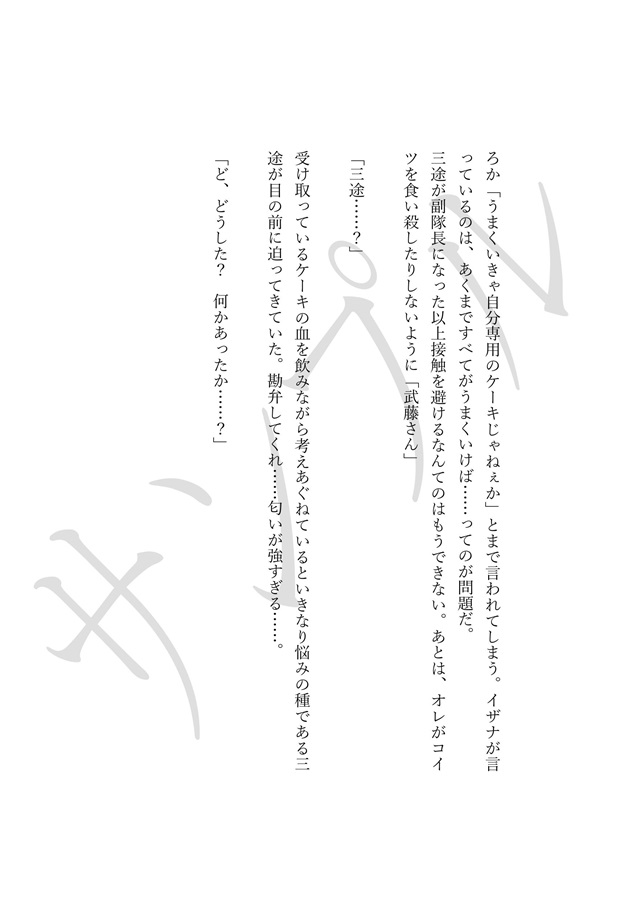 ろか「うまくいきゃ自分専用のケーキじゃねぇか」とまで言われてしまう。イザナが言
っているのは、あくまですべてがうまくいけば……ってのが問題だ。
三途が副隊長になった以上接触を避けるなんてのはもうできない。あとは、オレがコイ
ツを食い殺したりしないように「武藤さん」
「三途……？」
受け取っているケーキの血を飲みながら考えあぐねているといきなり悩みの種である三
途が目の前に迫ってきていた。勘弁してくれ……匂いが強すぎる……。
「ど、どうした？　何かあったか……？」
サンプル